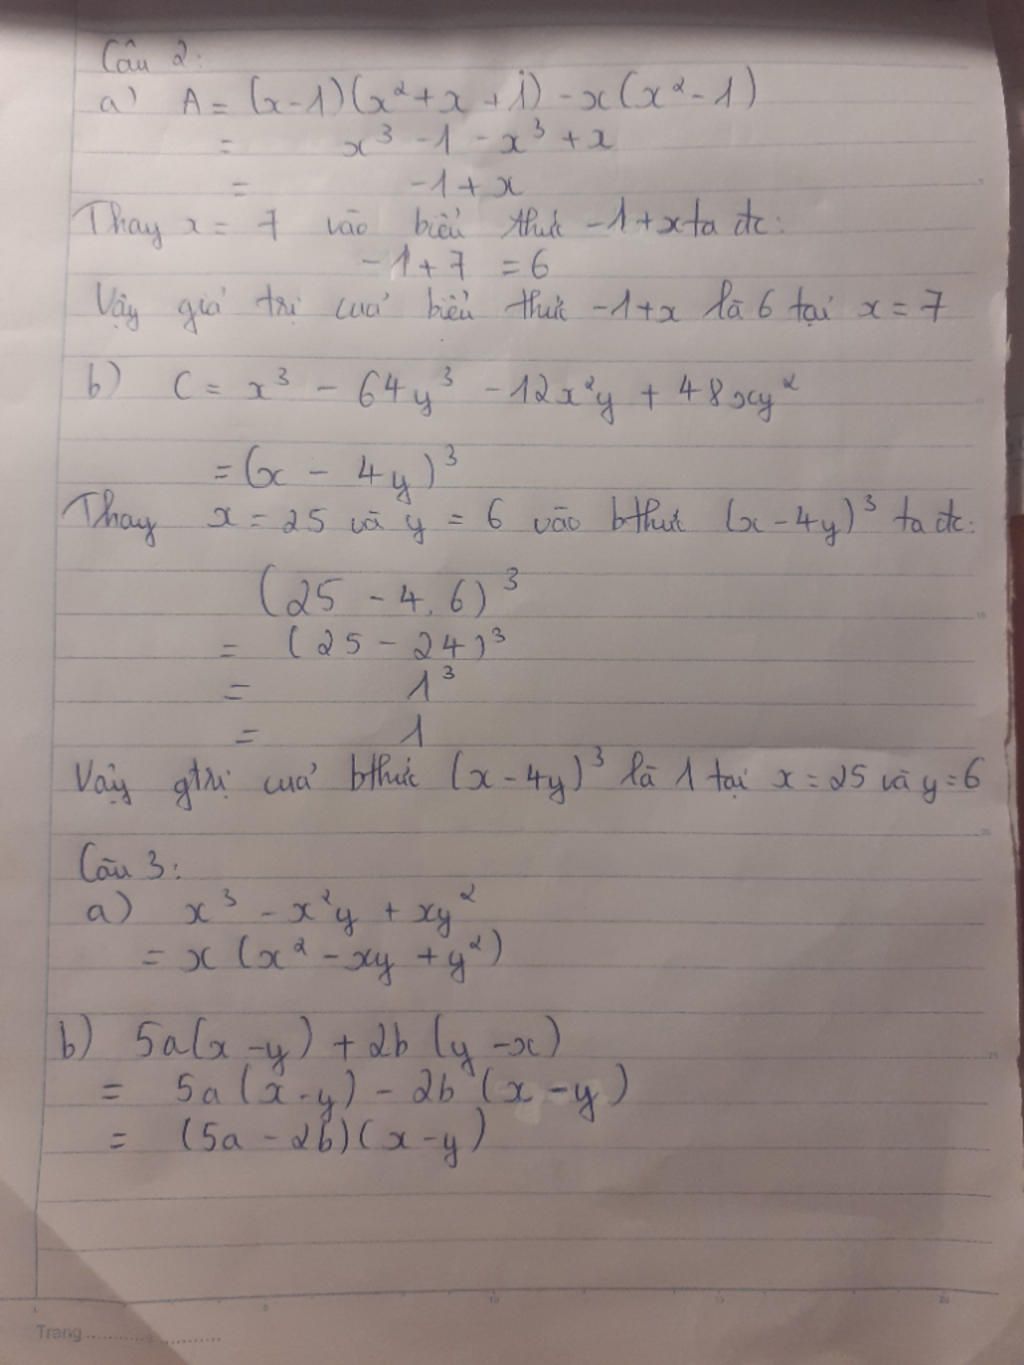 Câu 2:
a) A = (x-1)(x²+x+1) - x(x²-1)
= x³ -1 - x³ + x
= -1 + x
Thay x = 7 vào biểu thức -1+x ta đc:
-1+7 = 6
Vậy giá trị của biểu thức -1+x là 6 tại x = 7
b) C = x³ - 64y³ - 12x²y + 48xy²
= (x - 4y)³
Thay x = 25 và y = 6 vào bthức (x-4y)³ ta đc:
(25 - 4.6)³
= (25 - 24)³
= 1³
= 1
Vậy gtrị của bthức (x-4y)³ là 1 tại x = 25 và y = 6
Câu 3:
a) x³ - x²y + xy²
= x (x² - xy + y²)
b) 5a(x-y) + 2b(y-x)
= 5a(x-y) - 2b(x-y)
= (5a - 2b)(x-y)
Trang